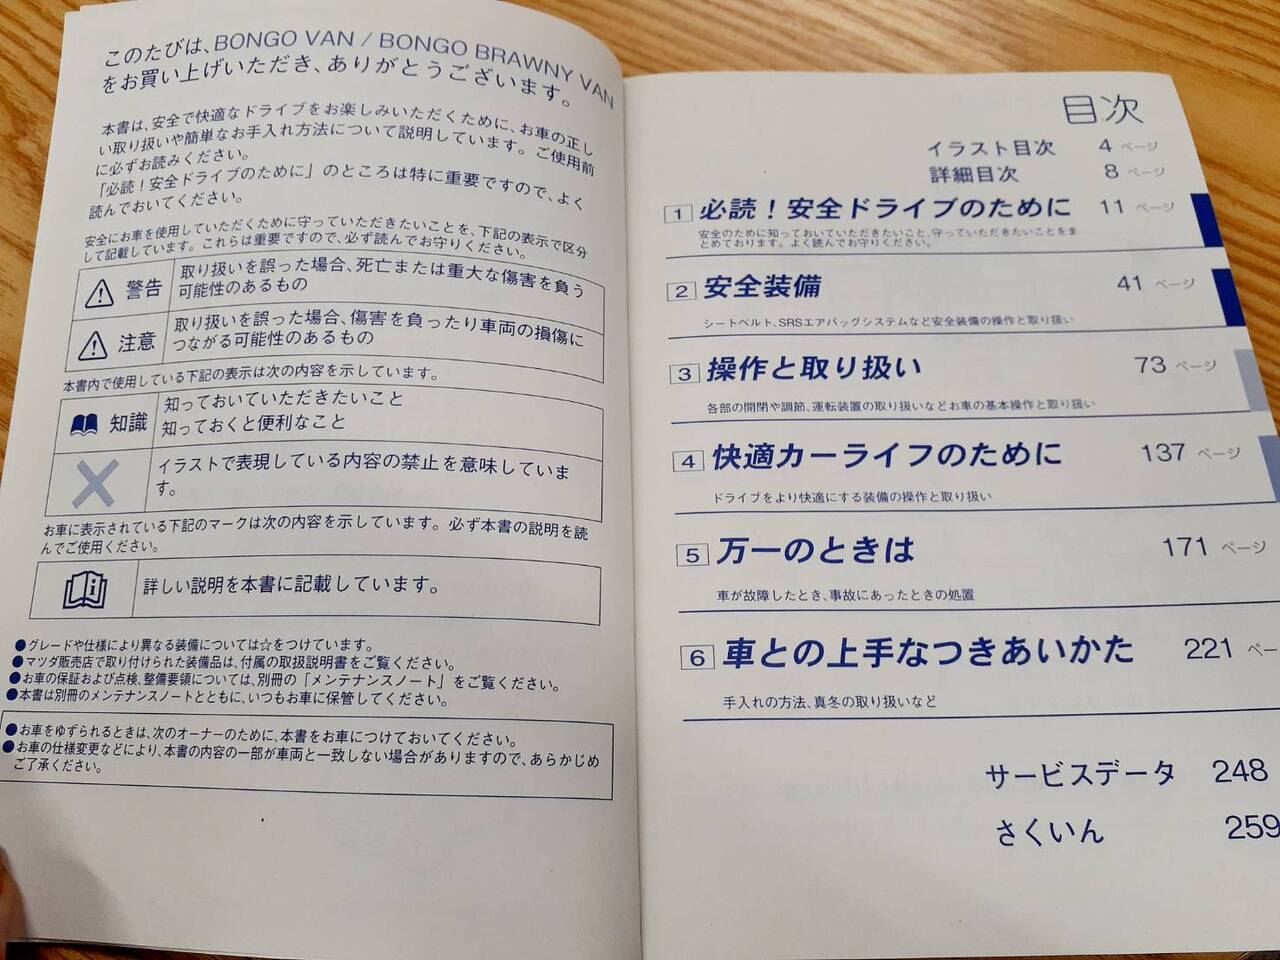 このたびは、BONGO VAN / BONGO BRAWNY VAN
をお買い上げいただき、ありがとうございます。
本書は、安全で快適なドライブをお楽しみいただくために、お車の正し
い取り扱いや簡単なお手入れ方法について説明しています。ご使用前
に必ずお読みください。
「必読！安全ドライブのために」のところは特に重要ですので、よく
読んでおいてください。
安全にお車を使用していただくために守っていただきたいことを、下記の表示で区分
して記載しています。これらは重要ですので、必ず読んでお守りください。
警告
取り扱いを誤った場合、死亡または重大な傷害を負う
可能性のあるもの
注意
取り扱いを誤った場合、傷害を負ったり車両の損傷に
つながる可能性のあるもの
本書内で使用している下記の表示は次の内容を示しています。
知識
知っておいていただきたいこと
知っておくと便利なこと
イラストで表現している内容の禁止を意味していま
す。
お車に表示されている下記のマークは次の内容を示しています。必ず本書の説明を読
んでご使用ください。
詳しい説明を本書に記載しています。
●グレードや仕様により異なる装備については☆をつけています。
●マツダ販売店で取り付けられた装備品は、付属の取扱説明書をご覧ください。
●お車の保証および点検、整備要領については、別冊の「メンテナンスノート」をご覧ください。
●本書は別冊のメンテナンスノートとともに、いつもお車に保管してください。
●お車をゆずられるときは、次のオーナーのために、本書をお車につけておいてください。
●お車の仕様変更などにより、本書の内容の一部が車両と一致しない場合がありますので、あらかじめ
ご了承ください。
目次
イラスト目次 4 ページ
詳細目次 8 ページ
1 必読！安全ドライブのために 11 ページ
安全のために知っておいていただきたいこと、守っていただきたいことをま
とめております。よく読んでお守りください。
2 安全装備 41 ページ
シートベルト、SRSエアバッグシステムなど安全装備の操作と取り扱い
3 操作と取り扱い 73 ページ
各部の開閉や調節、運転装置の取り扱いなどお車の基本操作と取り扱い
4 快適カーライフのために 137 ページ
ドライブをより快適にする装備の操作と取り扱い
5 万一のときは 171 ページ
車が故障したとき、事故にあったときの処置
6 車との上手なつきあいかた 221 ペー
手入れの方法、真冬の取り扱いなど
サービスデータ 248
さくいん 259